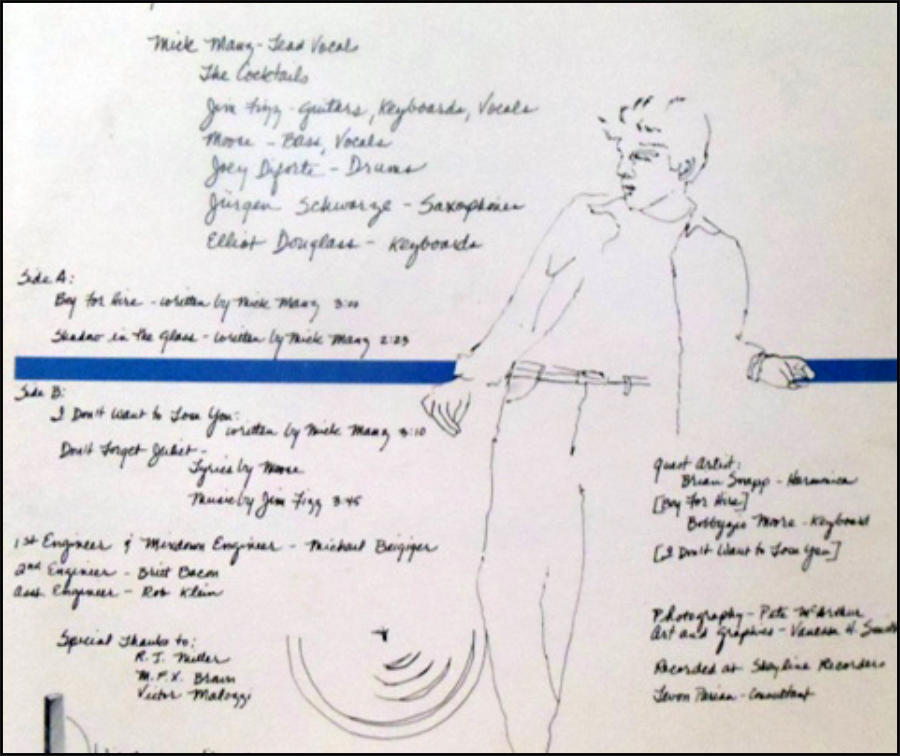 Mick Mang - Lead Vocals
The Cocktails
Jim Fizz - Guitars, Keyboards, Vocals
Moore - Bass, Vocals
Joey Diforte - Drums
Jürgen Schwarze - Saxophones
Elliot Douglass - Keyboards
Side A:
Boy For Hire - written by Mick Mang
Shadow in the Glass - written by Mick Mang 2:23
Side B:
I Don't Want to Lose You:
written by Mick Mang 3:10
Don't Forget Juliet -
Lyrics by Moore
Music by Jim Fizz 3:45
1st Engineer & Mixdown Engineer - Michael
2nd Engineer - Britt Bacon
Asst. Engineer - Rob Klein
Special Thanks to:
R.J. Miller
M.F.X. Braun
Victor Malozzi
Guest Artist:
Brian Snapp - Harmonica
[Boy For Hire]
Moore - Keyboard
[I Don't Want to Lose You]
Photography - Pete McArthur
Art and Graphics - Vanessa H.
Recorded at Skyline Recorders
Consultant